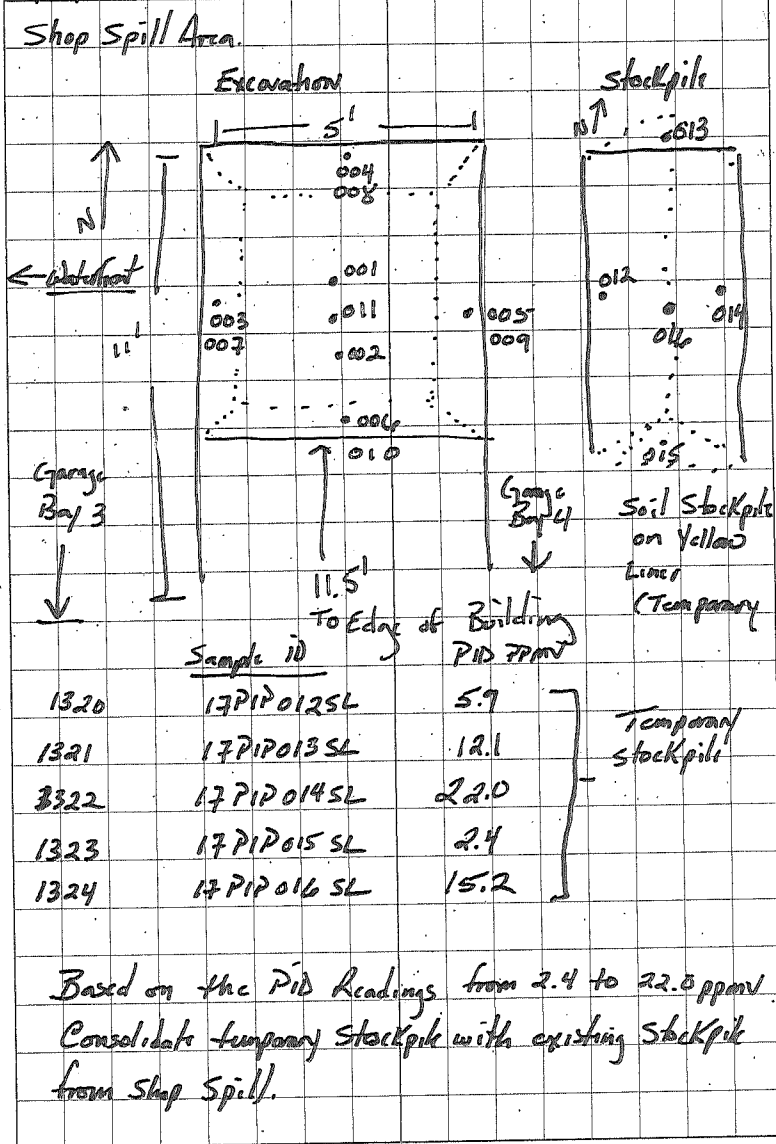 Shop Spill Area.
Excavation
Stockpile
5'
N
013
004
008
N
← Waterfront
001
012
003
011
005
014
007
009
016
11'
002
006
010
015
Garage
Bay 3
Garage
Bay 4
Soil Stockpile
on Yellow
Liner
(Temporary
11.5'
To Edge of Building
Sample ID PID PPMV
1320 17PIP012SL 5.9
1321 17PIP013SL 12.1
1322 17PIP014SL 22.0
1323 17PIP015SL 2.4
1324 17PIP016SL 15.2
Temporary
Stockpile
Based on the PID Readings from 2.4 to 22.0 ppmv
Consolidate temporary Stockpile with existing Stockpile
from Shop Spill.